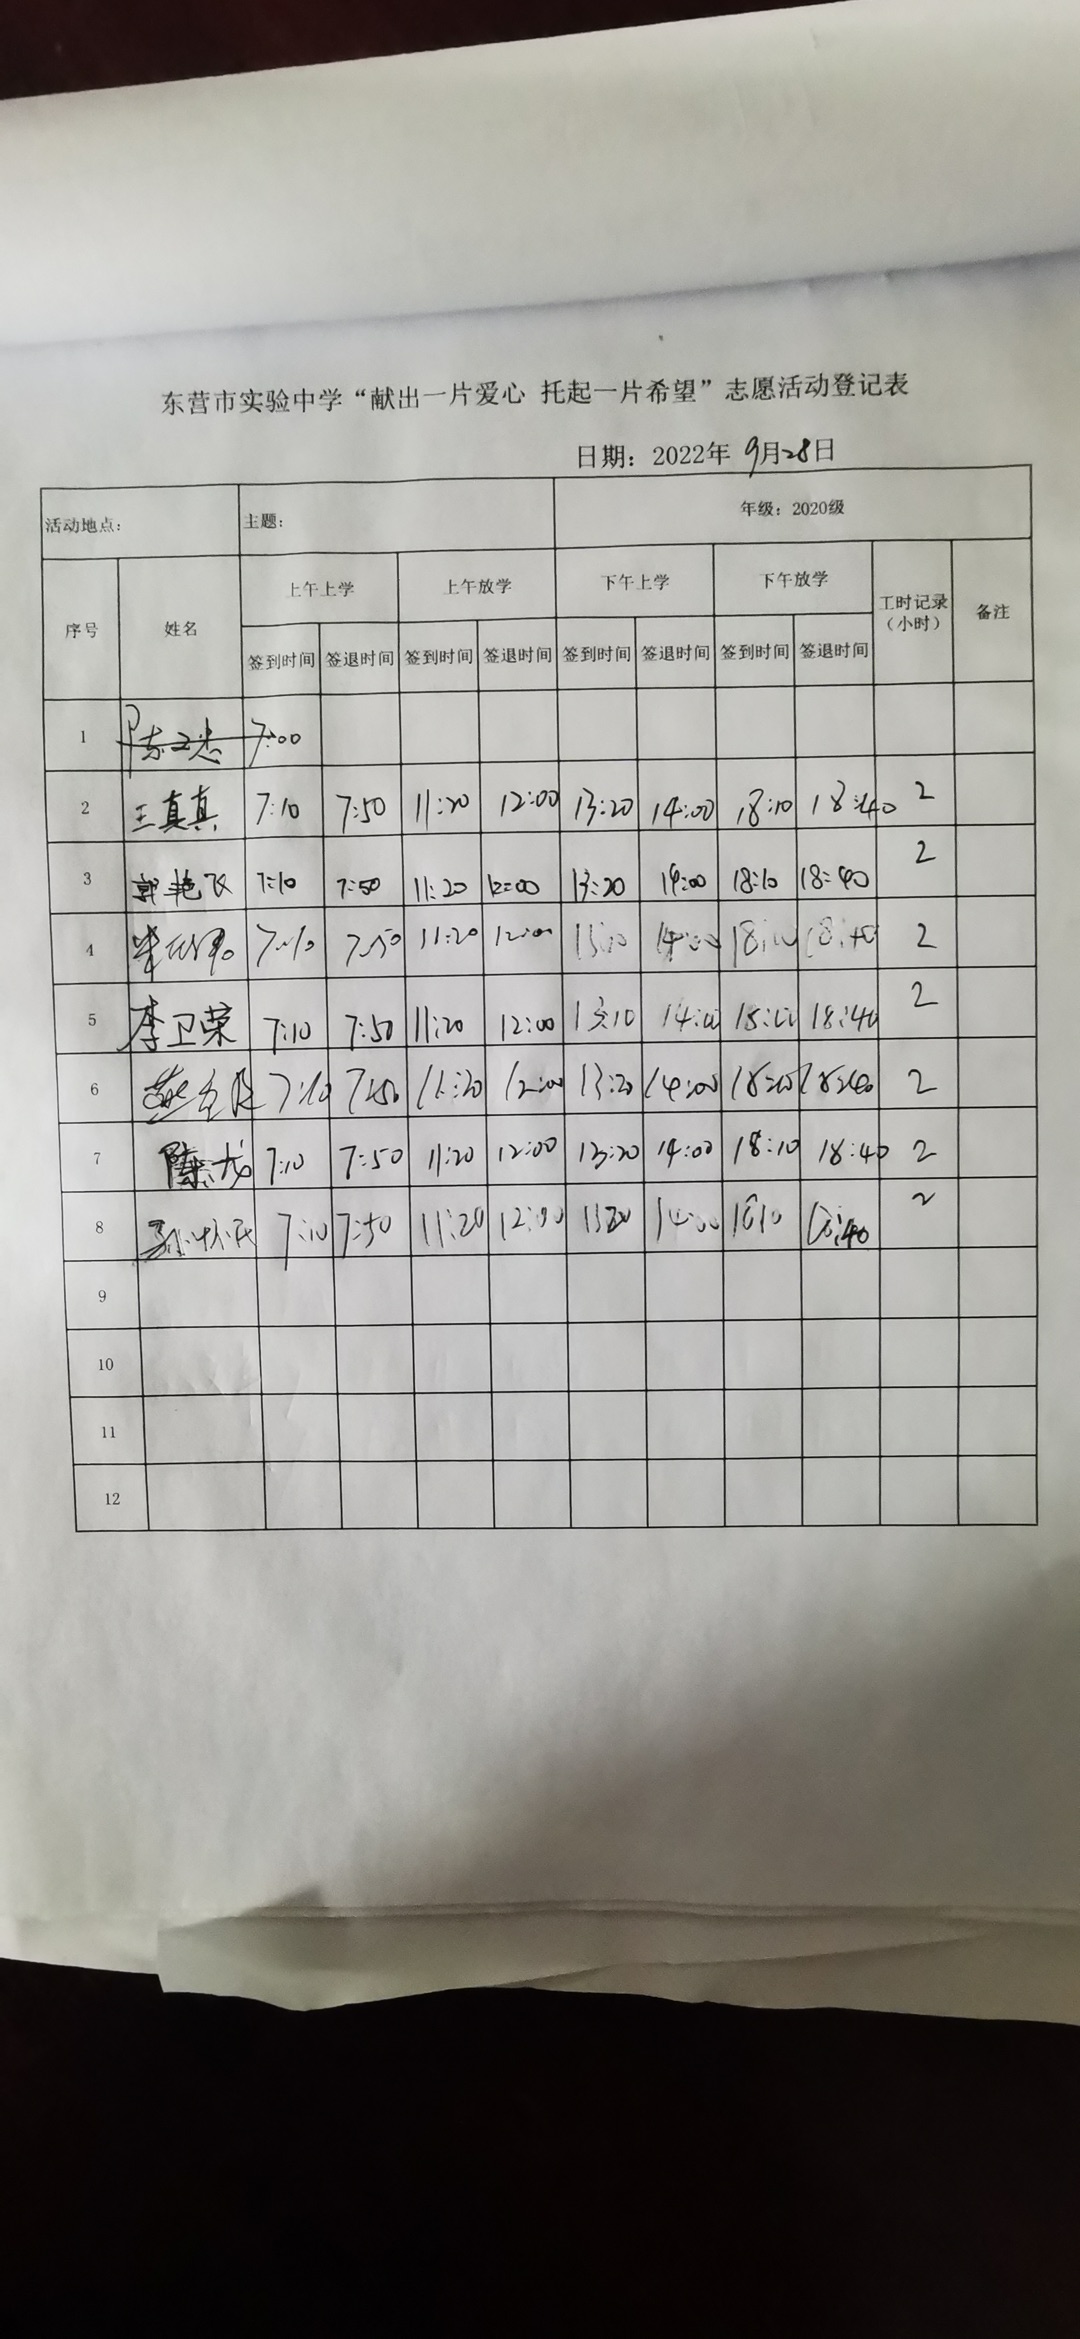 东营市实验中学“献出一片爱心 托起一片希望”志愿活动登记表
日期：2022年 9月28日
活动地点： 主题： 年级：2020级
序号 姓名 上午上学 上午放学 下午上学 下午放学 工时记录（小时） 备注
签到时间 签退时间 签到时间 签退时间 签到时间 签退时间 签到时间 签退时间
1 7:00
2 王真真 7:10 7:50 11:20 12:00 13:20 14:00 18:10 18:40 2
3 郭艳飞 7:10 7:50 11:20 12:00 13:20 14:00 18:10 18:40 2
4 7:10 7:50 11:20 12:00 14:00 18:40 2
5 李卫荣 7:10 7:50 11:20 12:00 13:10 14:00 18:40 2
6 7:10 7:50 11:20 12:00 13:20 14:00 18:40 2
7 陈龙 7:10 7:50 11:20 12:00 13:20 14:00 18:10 18:40 2
8 7:10 7:50 11:20 12:00 14:00 18:40 2
9
10
11
12